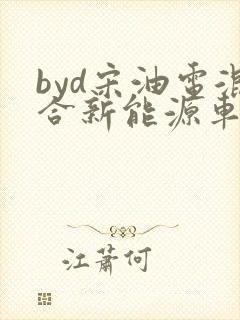 byd宋油电混
合新能源车
江蕭何